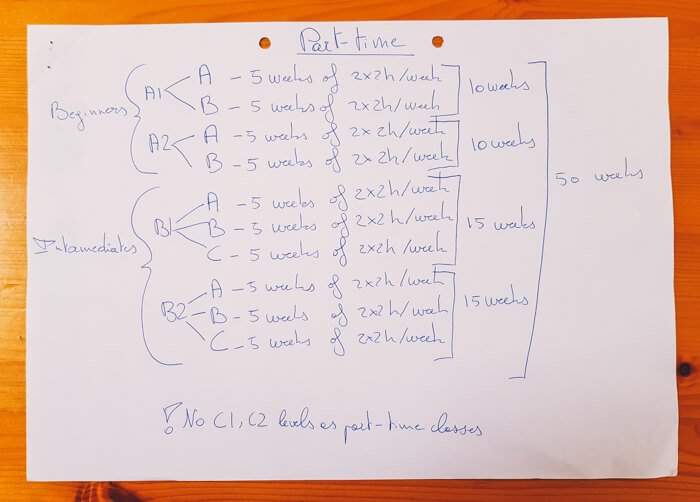 Part-time
A - 5 weeks of 2x2h/week
Beginners A1 10 weeks
B - 5 weeks of 2x2h/week
A - 5 weeks of 2x2h/week
A2 10 weeks
B - 5 weeks of 2x2h/week
50 weeks
A - 5 weeks of 2x2h/week
Intamediates B1 B - 5 weeks of 2x2h/week 15 weeks
C - 5 weeks of 2x2h/week
A - 5 weeks of 2x2h/week
B2 B - 5 weeks of 2x2h/week 15 weeks
C - 5 weeks of 2x2h/week
! No C1, C2 levels as part-time classes